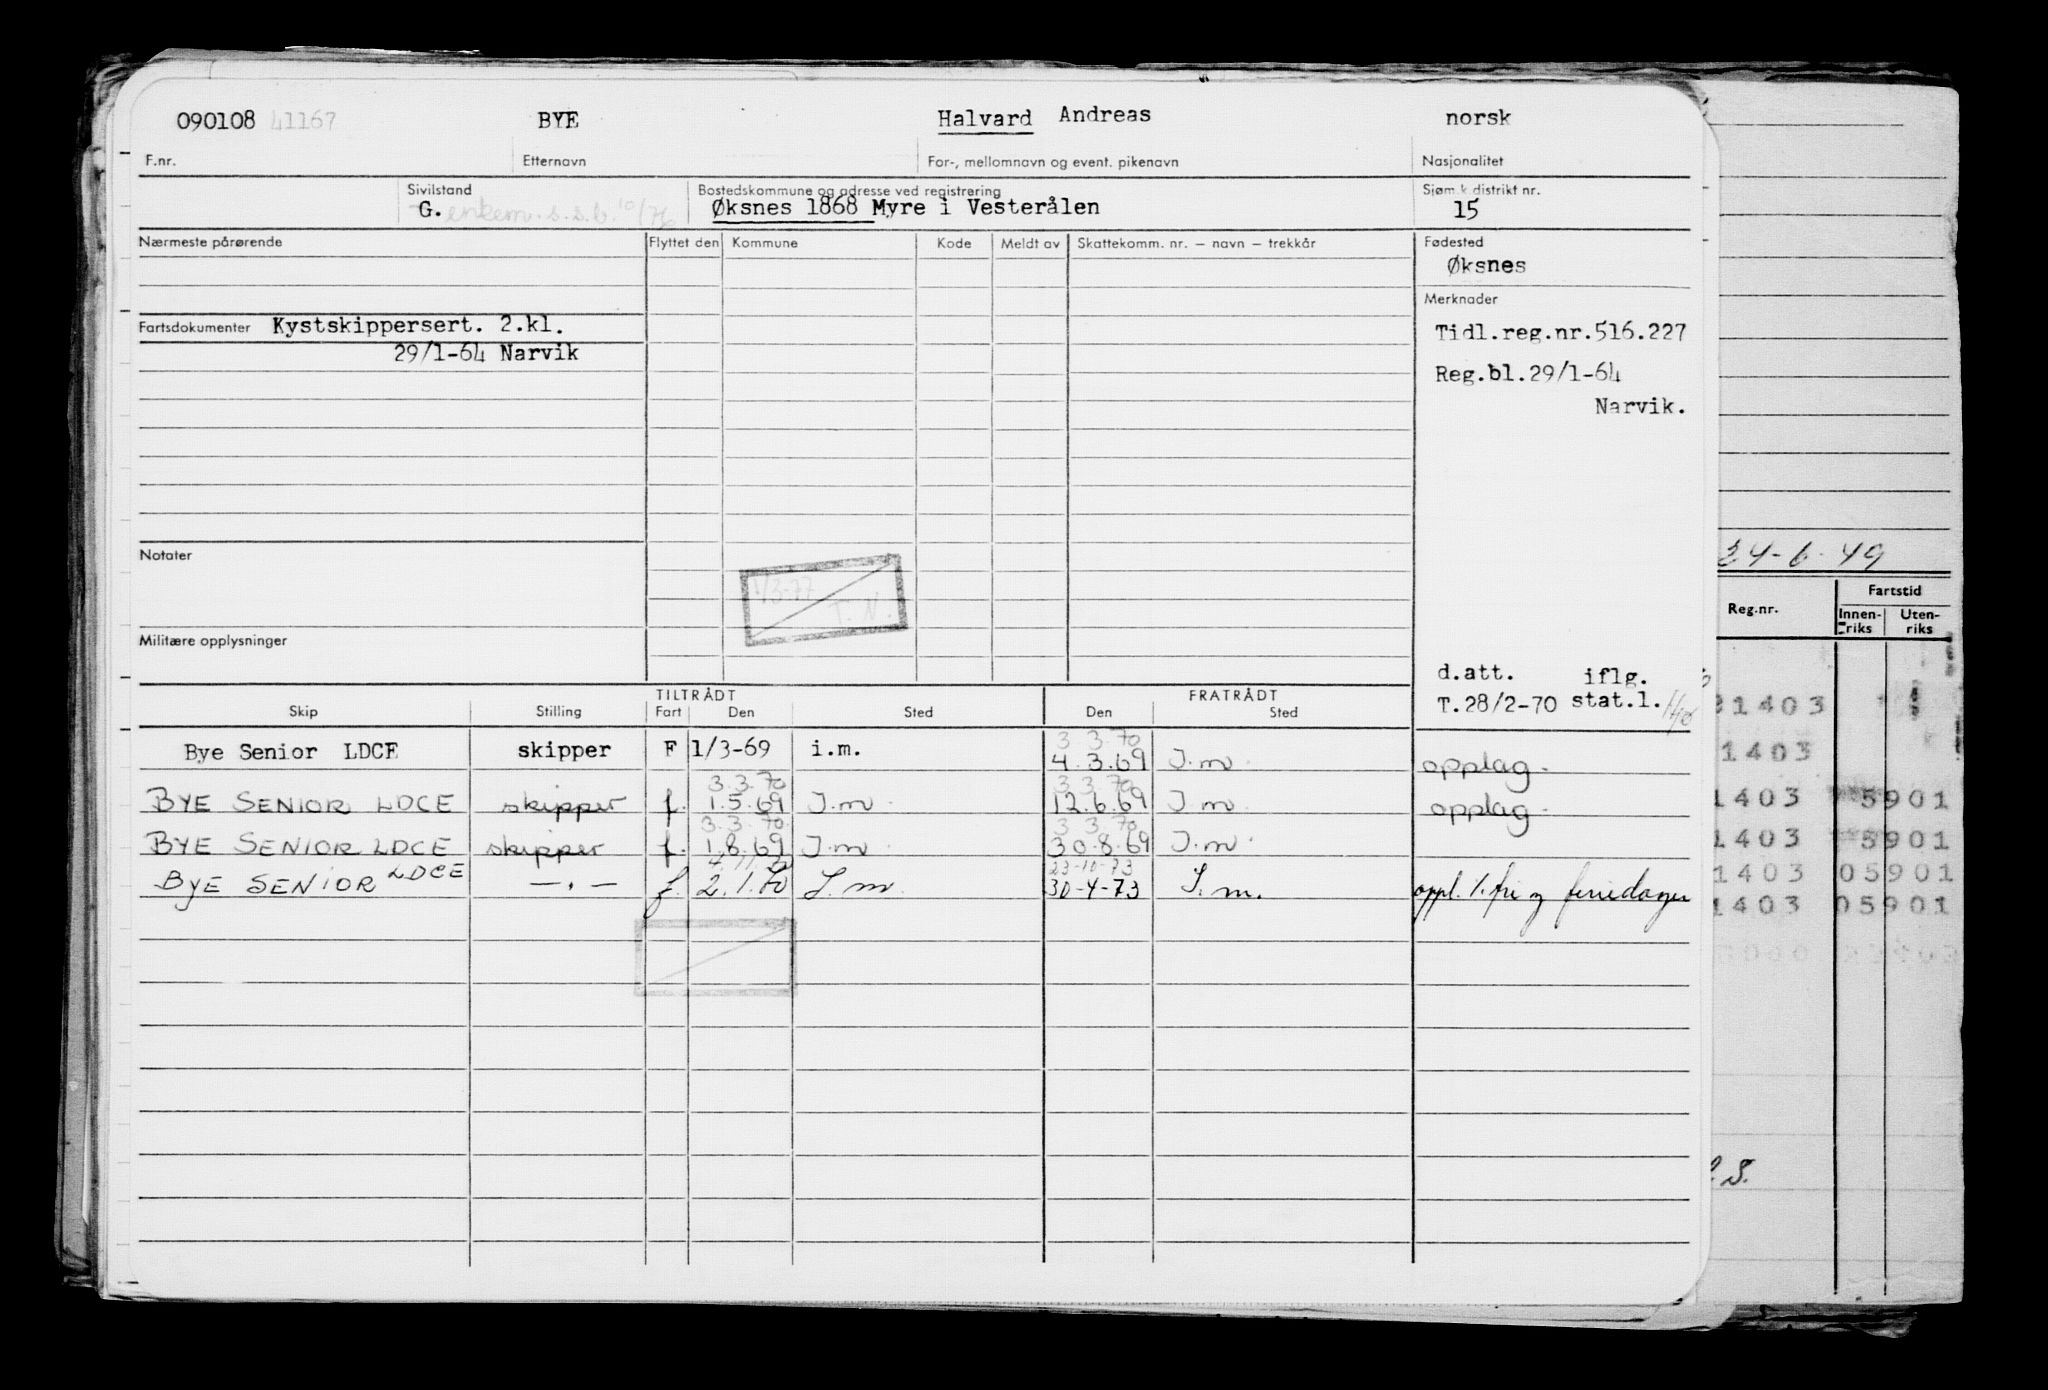 090108 41167 BYE Halvard Andreas norsk
F.nr. Etternavn For-, mellomnavn og event. pikenavn Nasjonalitet
Sivilstand Bostedskommune og adresse ved registrering Sjøm.k distrikt nr.
G. enkem. s.s.b. 10/76 Øksnes 1868 Myre i Vesterålen 15
Nærmeste pårørende Flyttet den Kommune Kode Meldt av Skattekomm. nr. – navn – trekkår Fødested
Øksnes
Merknader
Fartsdokumenter Kystskippersert. 2.kl. Tidl.reg.nr.516.227
29/1-64 Narvik
Reg.bl.29/1-64
Narvik.
24-6-49
Notater
1/3-77
T. N.
Fartstid
Reg.nr. Innen-riks Uten-riks
Militære opplysninger
d.att. iflg.
T.28/2-70 stat.l.
TILTRÅDT FRATRÅDT
Skip Stilling Fart Den Sted Den Sted
1403
3.3.70
Bye Senior LDCE skipper F 1/3-69 i.m. 4.3.69 I.m. opplag.
1403
3.3.70 3.3.70
BYE SENIOR LDCE skipper f. 1.5.69 I.m. 12.6.69 I.m. opplag.
1403 5901
3.3.70 3.3.70
BYE SENIOR LDCE skipper f. 1.8.69 I.m. 30.8.69 I.m.
1403 5901
23-10-73
BYE SENIOR LDCE —〃— f. 2.1.70 I.m. 30-4-73 I.m. oppl. f. fri og feriedager
1403 05901
1403 05901
S.